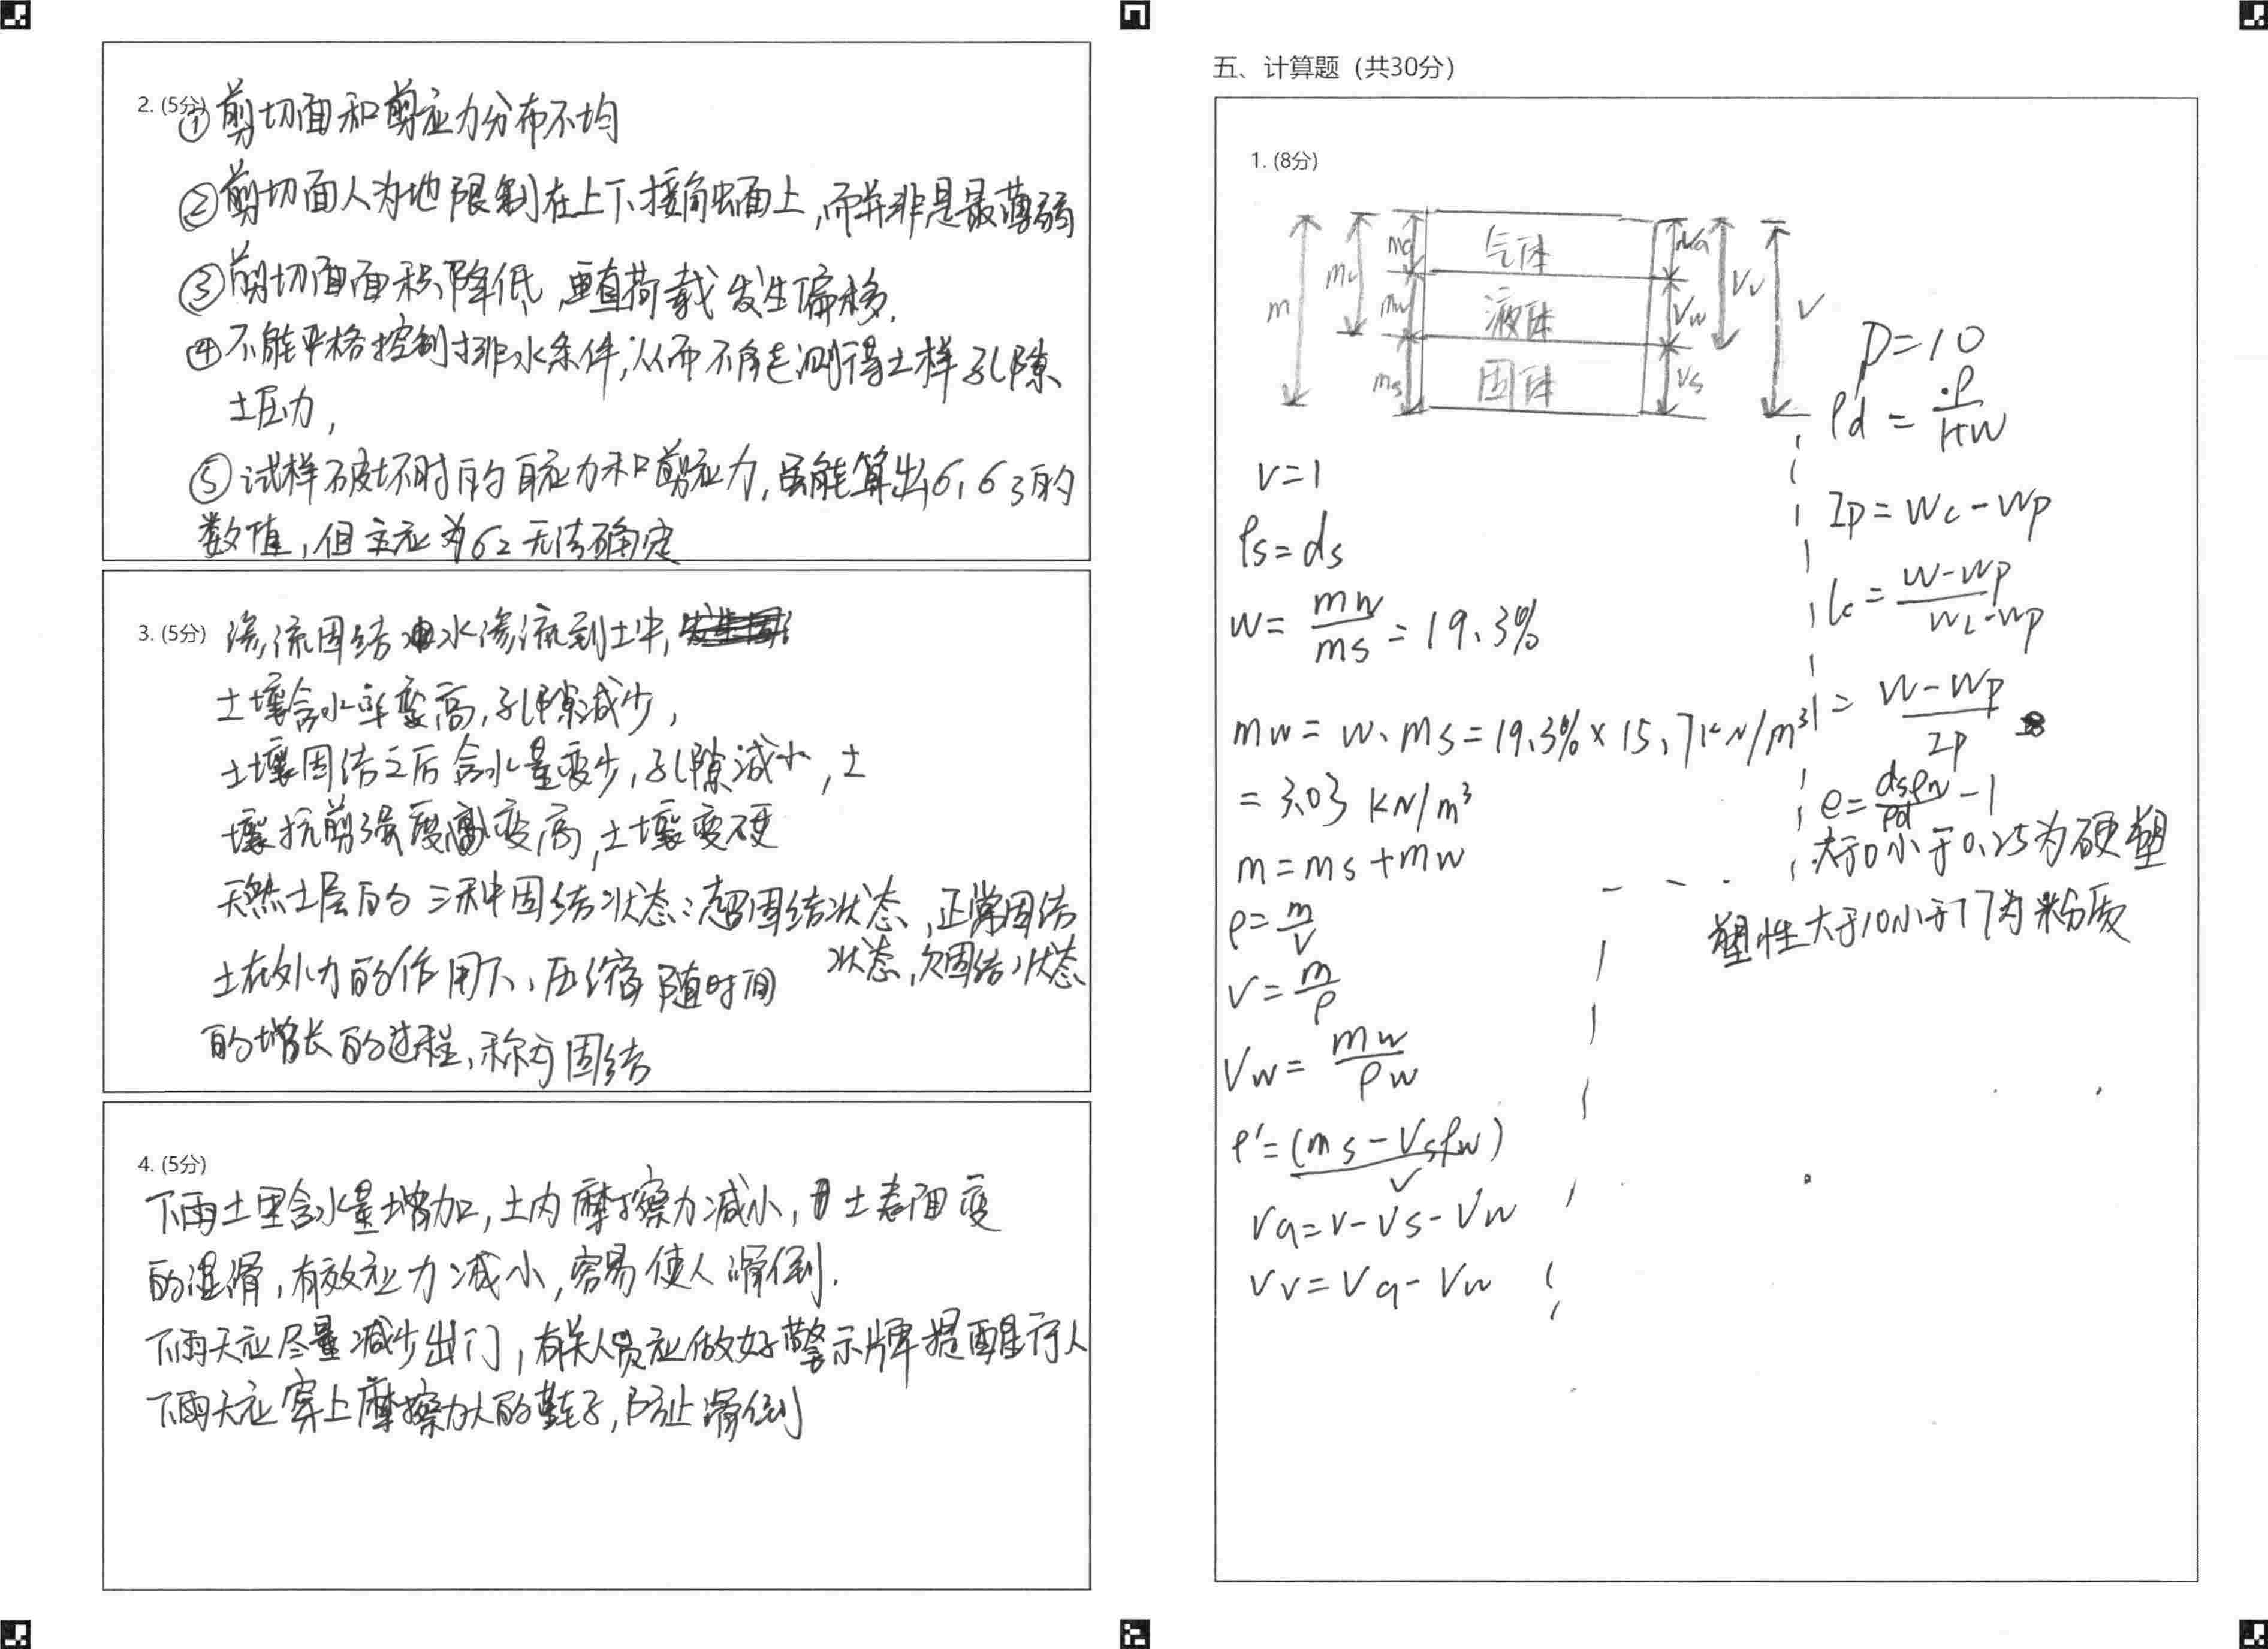 2. (5分)
①剪切面和剪应力分布不均
②剪切面人为地限制在上下接触面上,而并非是最薄弱
③剪切面面积降低,垂直荷载发生偏移.
④不能严格控制排水条件,从而不能测得土样孔隙
土压力,
⑤试样破坏时的正应力和剪应力,虽能算出σ1σ3的
数值,但主应为σ2无法确定
3. (5分) 渗流固结 水渗流到土中,
土壤含水率变高,孔隙减少,
土壤固结之后含水量变少,孔隙减小,土
壤抗剪强度变高,土壤变硬
天然土层的三种固结状态:超固结状态,正常固结
状态,欠固结状态
土在外力的作用下,压缩随时间
的增长的过程,称为固结
4. (5分)
下雨土里含水量增加,土内摩擦力减小,土表面变
的湿滑,有效应力减小,容易使人滑倒.
下雨天应尽量减少出门,有关人员应做好警示牌提醒行人
下雨天应穿上摩擦力大的鞋子,防止滑倒
五、计算题(共30分)
1. (8分)
m
ma
mw
ms
气体
液体
固体
Va
Vw
Vs
Vv
V
V=1
ρs=ds
w=mw/ms=19.3%
mw=w.ms=19.3%×15.7KN/m³
=3.03 KN/m³
m=ms+mw
ρ=m/V
V=m/ρ
Vw=mw/ρw
ρ'=(ms-Vsρw)/V
Va=V-Vs-Vw
Vv=Va-Vw
ρ=10
ρd=ρ/1+w
Ip=wc-wp
Ic=w-wp/wL-wp
=w-wp/Ip
e=dsρw/ρd-1
大于0小于0.25为硬塑
塑性大于10小于17为粉质